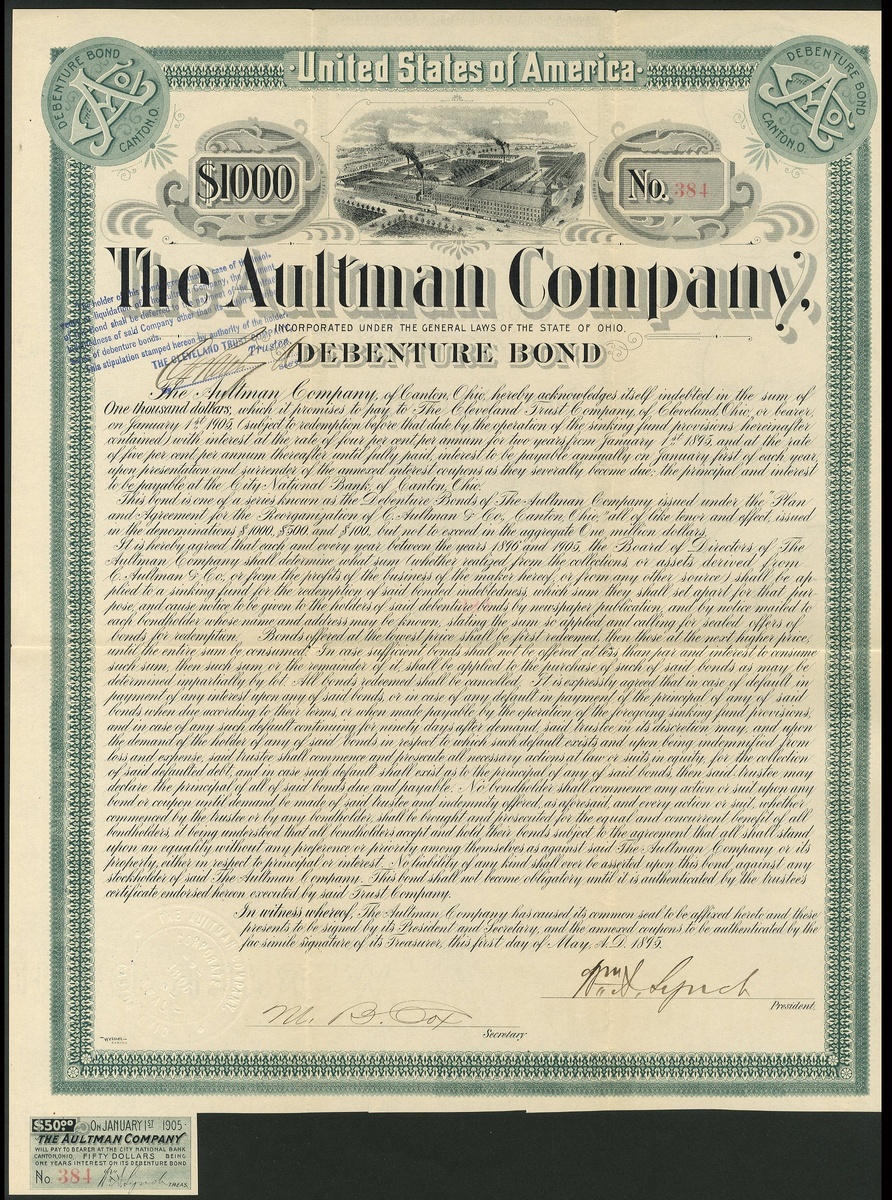 DEBENTURE BOND
THE A Co.
CANTON, O.
United States of America
DEBENTURE BOND
THE A Co.
CANTON, O.
$1000
No. 384
The Aultman Company,
INCORPORATED UNDER THE GENERAL LAWS OF THE STATE OF OHIO.
DEBENTURE BOND
The holder of this Bond agrees in case of the insol-
or liquidation of the Aultman Company, the payment
Bond shall be deferred to the payment of the
indebtedness of said Company other than its
of debenture bonds.
This stipulation stamped hereon by authority of the holder.
THE CLEVELAND TRUST COMPANY
Trustee.
The Aultman Company, of Canton, Ohio, hereby acknowledges itself indebted in the sum of
One thousand dollars, which it promises to pay to The Cleveland Trust Company, of Cleveland, Ohio, or bearer,
on January 1st 1905 (subject to redemption before that date by the operation of the sinking fund provisions hereinafter
contained) with interest at the rate of four per cent per annum for two years from January 1st 1895, and at the rate
of five per cent per annum thereafter until fully paid, interest to be payable annually on January first of each year,
upon presentation and surrender of the annexed interest coupons as they severally become due; the principal and interest
to be payable at the City National Bank, of Canton, Ohio.
This bond is one of a series known as the Debenture Bonds of The Aultman Company issued under the "Plan
and Agreement for the Reorganization of C. Aultman & Co., Canton, Ohio," all of like tenor and effect, issued
in the denominations $1000, $500 and $100, but not to exceed in the aggregate One million dollars.
It is hereby agreed that each and every year between the years 1896 and 1905, the Board of Directors of The
Aultman Company shall determine what sum (whether realized from the collections, or assets derived from
C. Aultman & Co., or from the profits of the business of the maker hereof, or from any other source) shall be ap
plied to a sinking fund for the redemption of said bonded indebtedness, which sum they shall set apart for that pur-
pose, and cause notice to be given to the holders of said debenture bonds by newspaper publication, and by notice mailed to
each bondholder whose name and address may be known, stating the sum so applied and calling for sealed offers of
bonds for redemption. Bonds offered at the lowest price shall be first redeemed, then those at the next higher price,
until the entire sum be consumed. In case sufficient bonds shall not be offered at less than par and interest to consume
such sum, then such sum or the remainder of it, shall be applied to the purchase of such of said bonds as may be
determined impartially by lot. All bonds redeemed shall be cancelled. It is expressly agreed that in case of default in
payment of any interest upon any of said bonds, or in case of any default in payment of the principal of any of said
bonds when due according to their terms, or when made payable by the operation of the foregoing sinking fund provisions,
and in case of any such default continuing for ninety days after demand, said trustee in its discretion may, and upon
the demand of the holder of any of said bonds in respect to which such default exists and upon being indemnified from
loss and expense, said trustee shall commence and prosecute all necessary actions at law or suits in equity, for the collection
of said defaulted debt, and in case such default shall exist as to the principal of any of said bonds, then said trustee may
declare the principal of all of said bonds due and payable. No bondholder shall commence any action or suit upon any
bond or coupon until demand be made of said trustee and indemnity offered, as aforesaid, and every action or suit, whether
commenced by the trustee or by any bondholder, shall be brought and prosecuted for the equal and concurrent benefit of all
bondholders, it being understood that all bondholders accept and hold their bonds subject to the agreement that all shall stand
upon an equality without any preference or priority among themselves as against said The Aultman Company or its
property, either in respect to principal or interest. No liability of any kind shall ever be asserted upon this bond against any
stockholder of said The Aultman Company. This bond shall not become obligatory until it is authenticated by the trustee's
certificate endorsed hereon executed by said Trust Company.
In witness whereof, The Aultman Company has caused its common seal to be affixed hereto and these
presents to be signed by its President and Secretary, and the annexed coupons to be authenticated by the
fac simile signature of its Treasurer, this first day of May, A.D. 1895.
THE AULTMAN COMPANY
CORPORATE
Wm. A. Lynch
President.
M. B. Cox
Secretary
$50.00 ON JANUARY 1ST 1905
THE AULTMAN COMPANY
WILL PAY TO BEARER AT THE CITY NATIONAL BANK
CANTON, OHIO, FIFTY DOLLARS BEING
ONE YEARS INTEREST ON ITS DEBENTURE BOND
No. 384 Wm. A. Lynch TREAS.